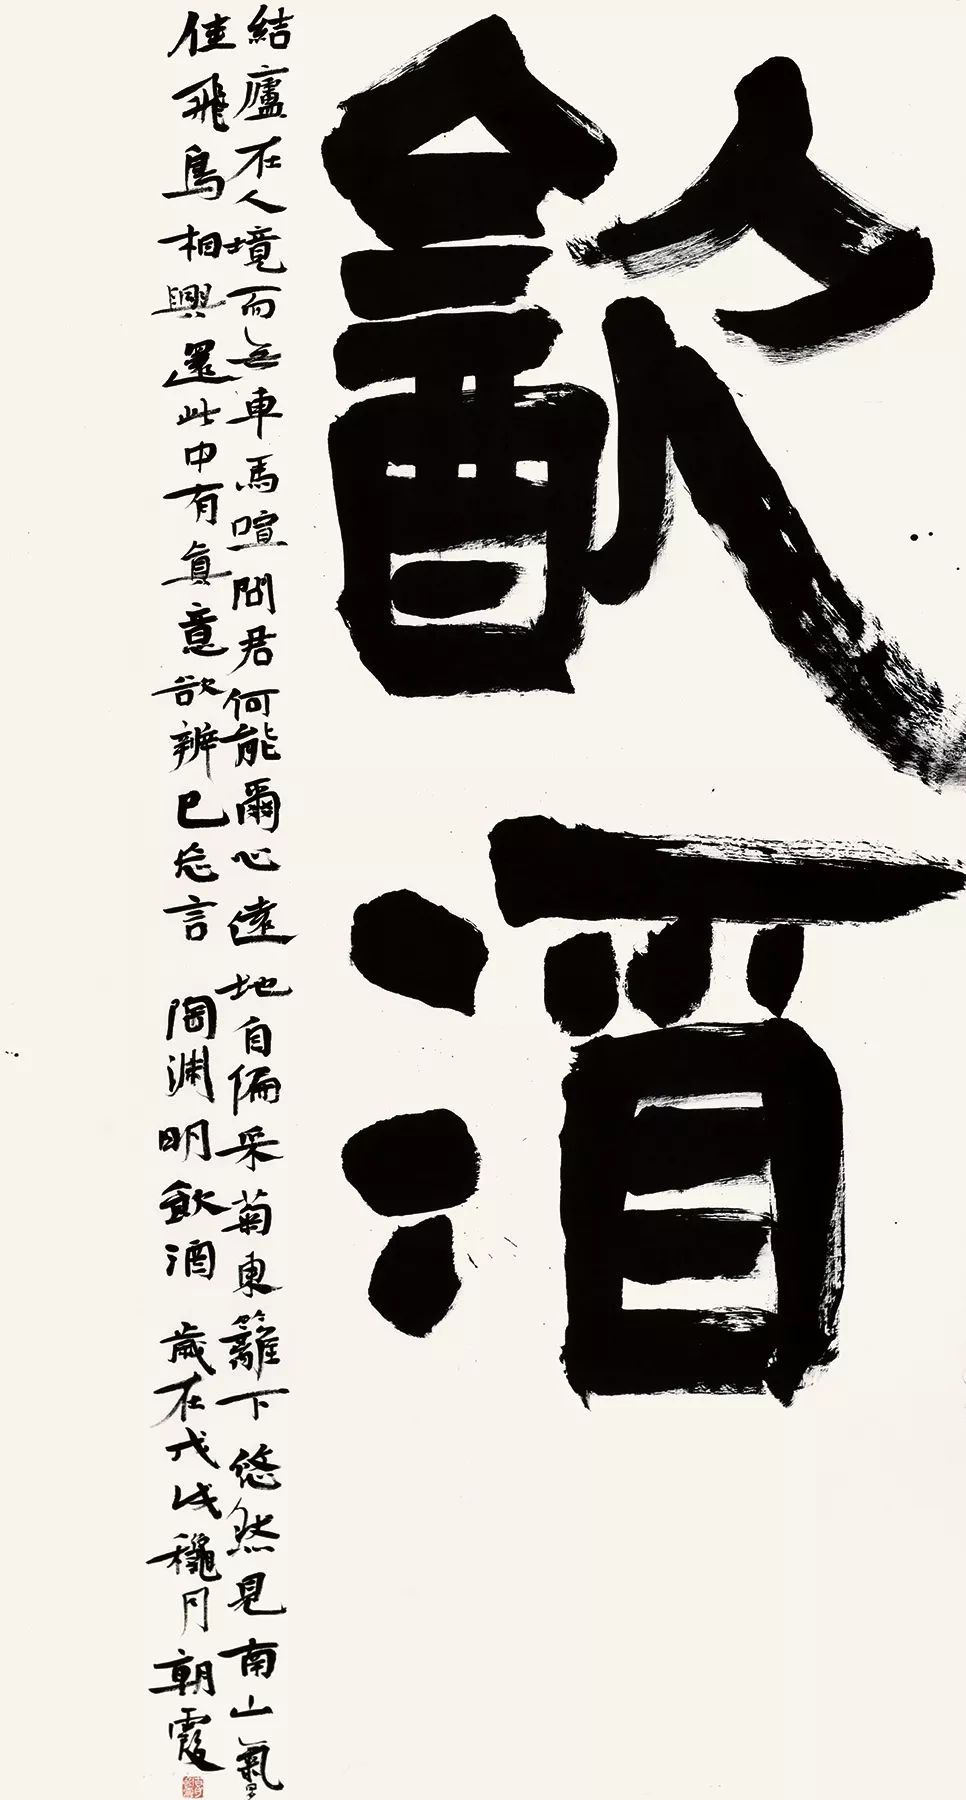 㱃酒
結廬在人境而無車馬喧問君何能爾心遠地自偏采菊東籬下悠然見南山氣日夕
佳飛鳥相與還此中有眞意欲辨已忘言 陶淵明飲酒 歲在戊戌穐月朝霞